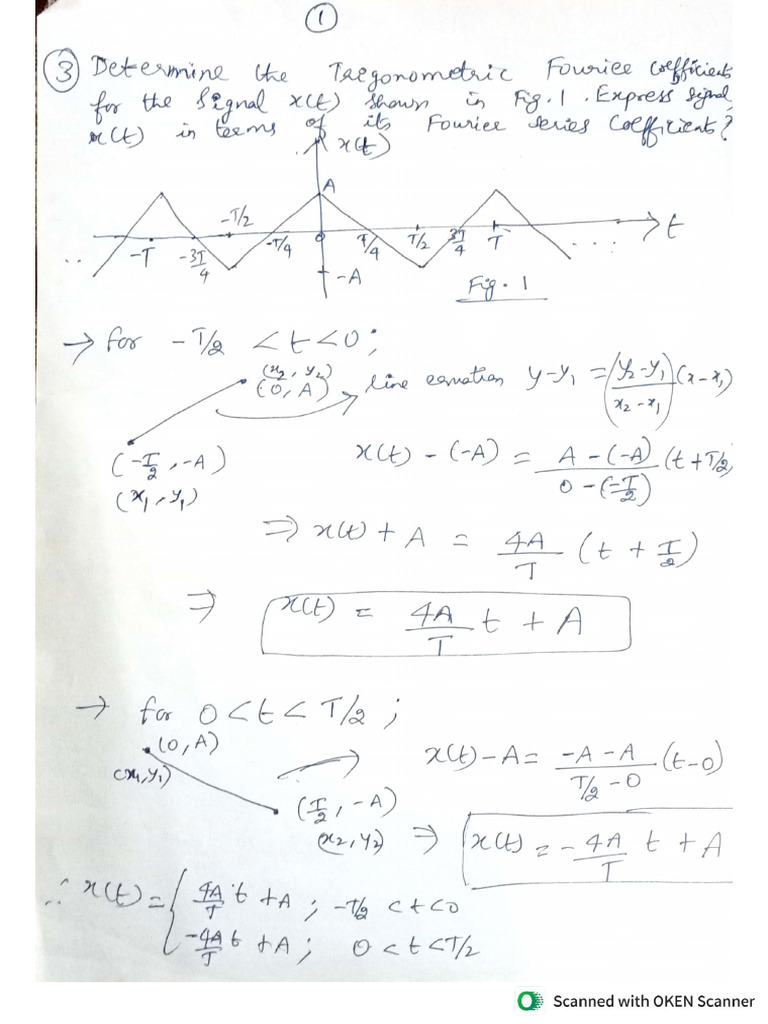 ①
③ Determine the Trigonometric Fourier coefficients
for the Signal x(t) shown in Fig.1. Express signal
x(t) in terms of its Fourier series Coefficients?
x(t)
A
-T/2
t
-T -3T/4 -T/4 0 T/4 T/2 3T/4 T
.. ...
-A
Fig. 1
→ for -T/2 < t < 0 ;
(x2, y2)
(0, A) line equation y-y1 = (y2-y1/x2-x1)(x-x1)
(-T/2, -A) x(t) - (-A) = A-(-A)/0-(-T/2) (t+T/2)
(x1, y1)
⇒ x(t) + A = 4A/T (t + T/2)
⇒ x(t) = 4A/T t + A
→ for 0 < t < T/2 ;
(0, A)
(x1, y1) x(t)-A = -A-A/T/2-0 (t-0)
(T/2, -A)
(x2, y2) ⇒ x(t) = -4A/T t + A
∴ x(t) = { 4A/T t + A ; -T/2 < t < 0
-4A/T t + A ; 0 < t < T/2
Scanned with OKEN Scanner